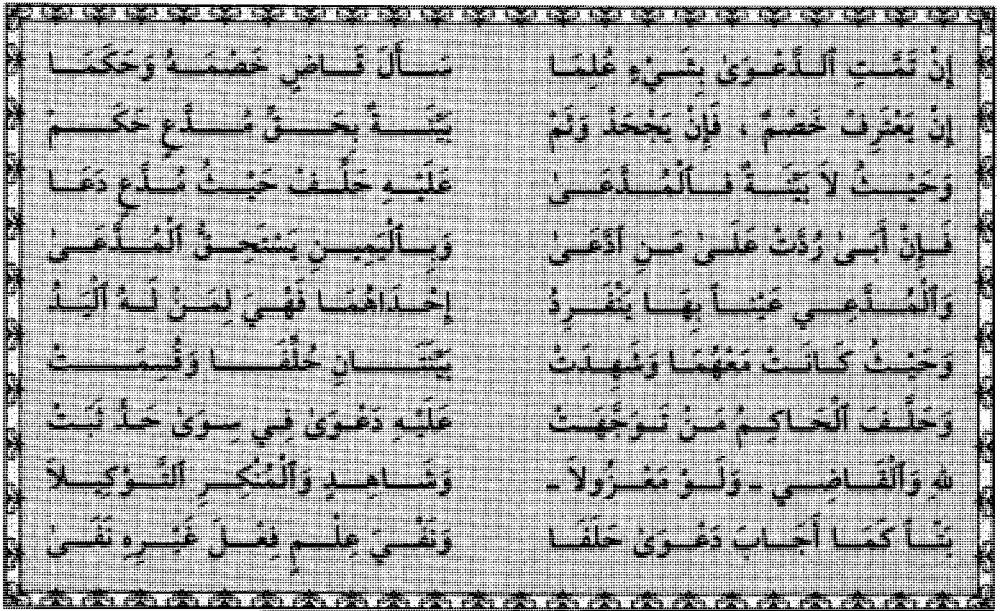 إِنْ تَمَّتِ ٱلدَّعْوَىٰ بِشَيْءٍ عُلِمَا سَأَلَ قَاضٍ خَصْمَهُ وَحَكَمَا
إِنْ يَعْتَرِفْ خَصْمٌ ، فَإِنْ يَجْحَدْ وَثَمْ بَيِّنَةٌ بِحَقٍّ مُدَّعٍ حَكَمْ
وَحَيْثُ لاَ بَيِّنَةٌ فَٱلْمُدَّعَىٰ عَلَيْهِ حَلِّفْ حَيْثُ مُدَّعٍ دَعَا
فَإِنْ أَبَىٰ رُدَّتْ عَلَىٰ مَنِ ٱدَّعَىٰ وَبِٱلْيَمِينِ يَسْتَحِقُّ ٱلْمُدَّعَىٰ
وَٱلْمُدَّعِي عَيْناً بِهَا يَنْفَرِدُ إِحْدَاهُمَا فَهِيَ لِمَنْ لَهُ ٱلْيَدُ
وَحَيْثُ كَانَتْ مَعْهُمَا وَشَهِدَتْ بَيِّنَتَانِ حُلِّفَا وَقُسِمَتْ
وَحَلَّفَ ٱلْحَاكِمُ مَنْ تَوَجَّهَتْ عَلَيْهِ دَعْوَىٰ فِي سِوَىٰ حَدٍّ ثَبَتْ
لِلهِ وَٱلْقَاضِي ـ وَلَوْ مَعْزُولاَ ـ وَشَاهِدٍ وَٱلْمُنْكِرِ ٱلتَّوْكِيلاَ
بَتّاً كَمَا أَجَابَ دَعْوَىٰ حَلَفَا وَنَفْيَ عِلْمٍ فِعْلَ غَيْرِهِ نَفَىٰ